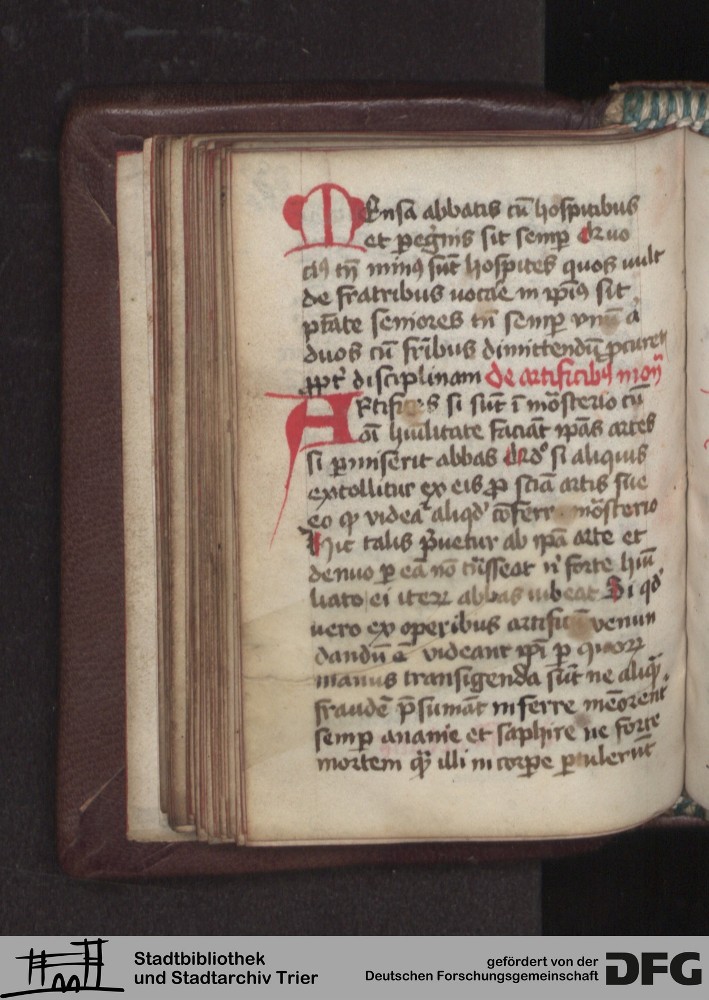 MEnsa abbatis cū hospitibus
et pegⁱnis sit semp Qⁱn uo
ciꝯ tn̄ minꝰ sūt hospites quos uult
de fratribus uocāe in ip̄iꝰ sit
p̄tāte seniores tn̄ semp vnū a
duos cū fr̄ibus dimittendū ꝓcuret
ꝓpt̄ disciplinam De artificibꝰ mon̄
ARtifices si sūt ī mōsterio cū
oī huīlitate faciāt ip̄as artes
si ꝑmiserit abbas Qrdͦ si aliquis
extollitur ex eis ꝓ sciā artis sue
eo ꝙ videaᵗ aliqd̕ cōferr mōsterio
Hic talis p̄uetur ab ip̄a arte et
denuo ꝑ eā nō trāsseat nͥ forte hiū
liato ei iteꝝ abbas iubeat Si qd̕
uero ex operibus artificū venun
dandū ē videant ip̄i ꝑ quoꝝ
manus transigenda sūt ne aliqᷓ
fraudē p̄sumāt inferre mēorent
semꝑ ananie et saphire ne forte
mortem qᷓ illi in corpe ꝑtulerūt
Stadtbibliothek
und Stadtarchiv Trier
gefördert von der
Deutschen Forschungsgemeinschaft DFG